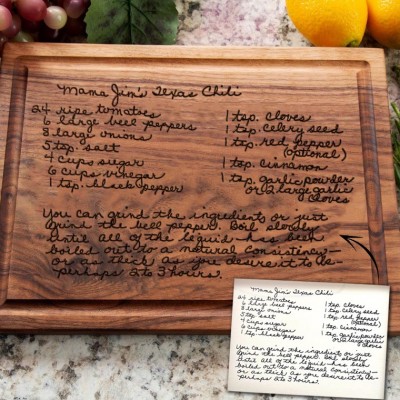 Mama Jim's Texas Chili
24 ripe tomatoes
6 large bell peppers
8 large onions
5 tsp salt
4 cups sugar
6 cups vinegar
1 tsp. black pepper
1 tsp. cloves
1 tsp. celery seed
1 tsp. red pepper
(optional)
1 tsp. cinnamon
1 tsp. garlic powder
or 2 large garlic
cloves
You can grind the ingredients or just
grind the bell pepper. Boil slowly
until all of the liquid has been
boiled out to a natural consistency—
or as thick as you desire it to be—
perhaps 2 to 3 hours.
Mama Jim's Texas Chili
24 ripe tomatoes
6 large bell peppers
8 large onions
5 tsp salt
4 cups sugar
6 cups vinegar
1 tsp. black pepper
1 tsp. cloves
1 tsp. celery seed
1 tsp. red pepper
(optional)
1 tsp. cinnamon
1 tsp. garlic powder
or 2 large garlic
cloves
You can grind the ingredients or just
grind the bell pepper. Boil slowly
until all of the liquid has been
boiled out to a natural consistency—
or as thick as you desire it to be—
perhaps 2 to 3 hours.